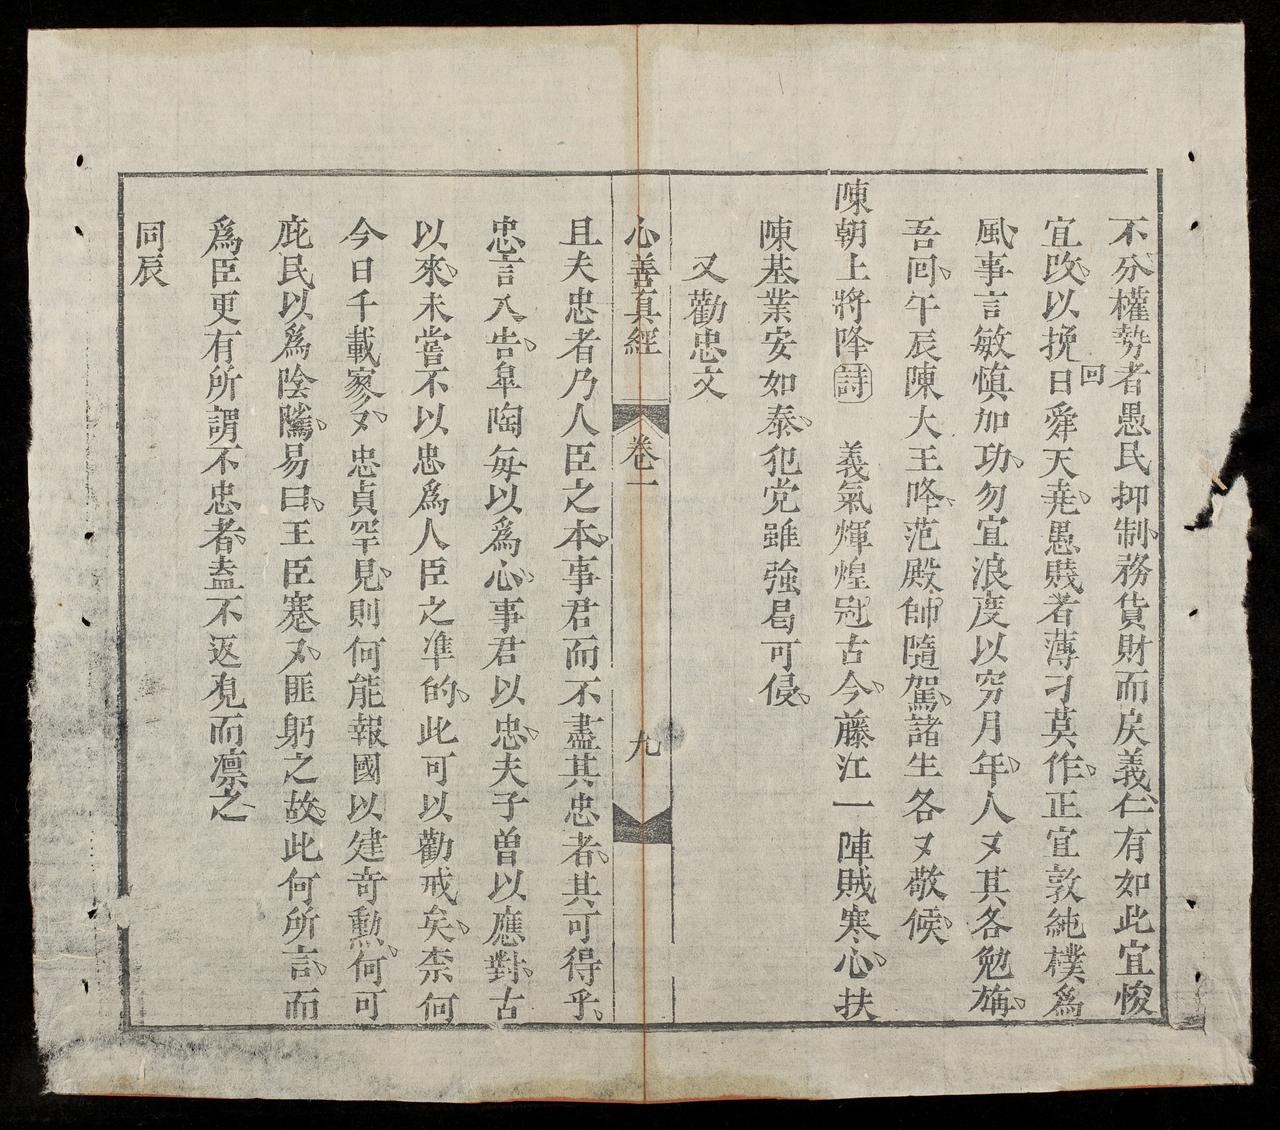 不分權勢者愚民抑制、務貨財而戾義仁、有如此宜悛
宜改、以挽回日舜天堯、愚賤者薄刁莫作、正宜敦純樸為
風事言敏慎加功、勿宜浪度以穷月年、人又其各勉旃、
吾回、午辰陳大王降、范殿帥隨駕、諸生各又敬候、
陳朝上將降詩 義氣輝煌冠古今、藤江一陣賊寒心、扶
陳基業安如泰、犯党雖強曷可侵、
又勸忠文
心善真經 卷一 九
且夫忠者乃人臣之本、事君而不盡其忠者、其可得乎、
忠言入告、皐陶每以為心、事君以忠、夫子曾以應對、古
以來、未嘗不以忠為人臣之準的、此可以勸戒矣、柰何
今日千載寥又、忠貞罕見、則何能報國以建竒勲、何可
庇民以為陰隲、易曰、王臣蹇又、匪躬之故、此何所言、而
為臣更有所謂不忠者、盍不返覌而凛之、
同辰